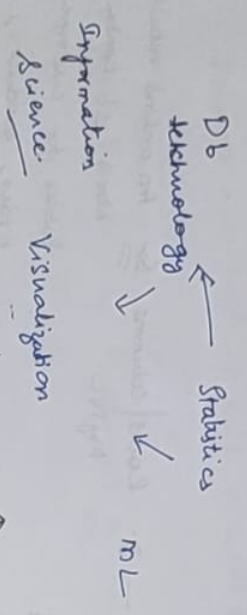 Db
tekhnology
Statistics
mL
Information
Science.
Visualization